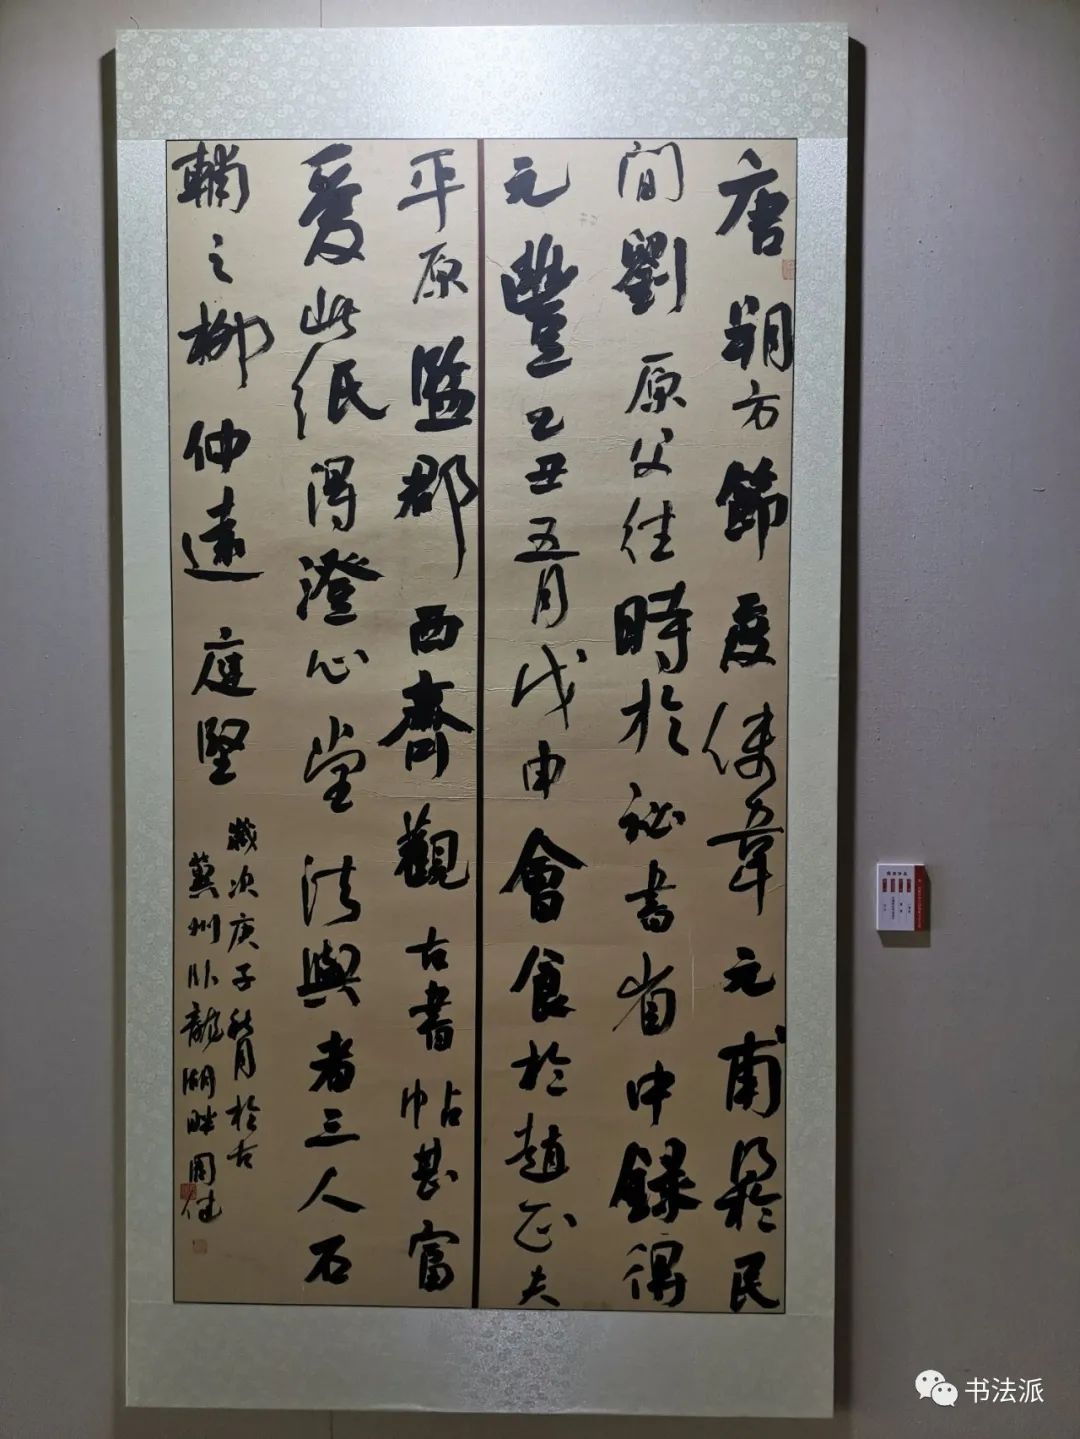 唐朔方節度使韋元甫得於民
間劉原父往時於祕書省中録得
元豐乙丑五月戊申會食於趙正夫
平原監郡西齋觀古書帖甚富
愛此紙得澄心堂法與者三人石
輔之柳仲遠庭堅
歲次庚子秋月於古
蘄州卧龍湖畔周
书法派